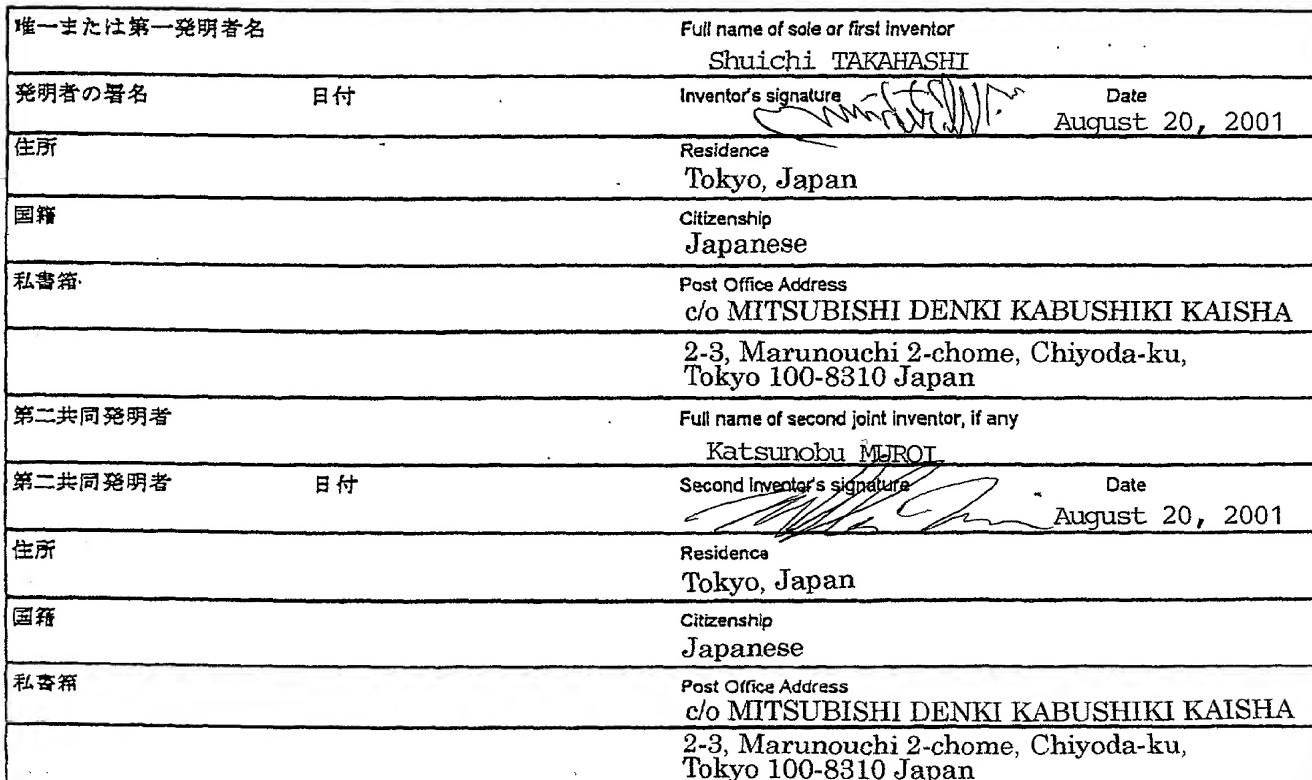 唯一または第一発明者名
Full name of sole or first inventor
Shuichi TAKAHASHI
発明者の署名 日付
Inventor's signature Date
August 20, 2001
住所
Residence
Tokyo, Japan
国籍
Citizenship
Japanese
私書箱
Post Office Address
c/o MITSUBISHI DENKI KABUSHIKI KAISHA
2-3, Marunouchi 2-chome, Chiyoda-ku,
Tokyo 100-8310 Japan
第二共同発明者
Full name of second joint inventor, if any
Katsunobu MUROI
第二共同発明者 日付
Second inventor's signature Date
August 20, 2001
住所
Residence
Tokyo, Japan
国籍
Citizenship
Japanese
私書箱
Post Office Address
c/o MITSUBISHI DENKI KABUSHIKI KAISHA
2-3, Marunouchi 2-chome, Chiyoda-ku,
Tokyo 100-8310 Japan